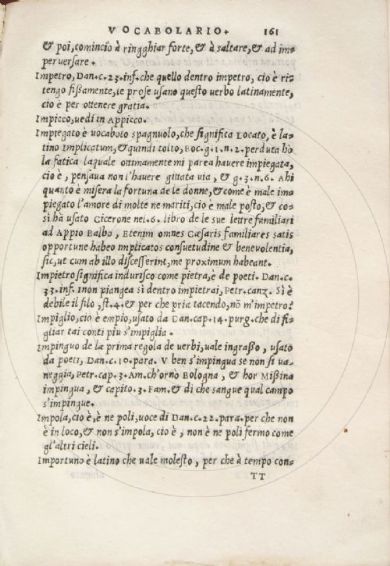 VOCABOLARIO. 161
& poi, comincio à ringghiar forte, & à saltare, & ad im=
perversare.
Impetro, Dan. c. 23. inf. che quello dentro impetro, cio è ri=
tengo fißamente, le prose usano questo uerbo latinamente,
cio è per ottenere gratia.
Impicco, uedi in Appicco.
Impiegato è uocabolo spagnuolo, che significa Locato, è la=
tino implicatum, & quindi tolto, Boc. g. 1. n. 2. perduta hò
la fatica laquale ottimamente mi parea hauere impiegata,
cio è, pensaua non l'hauere gittata uia, & g. 3. n. 6. Ahi
quanto è misera la fortuna de le donne, & come è male im=
piegato l'amore di molte ne mariti, cio è male posto, & co=
sì ha usato Cicerone nel. 6. libro de le sue lettre familiari
ad Appio Balbo, Etenim omnes Cæsaris familiares satis
opportune habeo implicatos consuetudine & beneuolentia,
sic, ut cum ab illo discesserint, me proximum habeant.
Impietro significa indurisco come pietra, è de poeti. Dan. c.
33. inf. i non piangea sì dentro impietrai, Petr. canz. Sì è
debile il filo, st. 4. & per che pria tacendo, nō m'impetro?
Impiglio, cio è empio, usato da Dan. cap. 14. purg. che di fi=
gliar tai conti piu s'impiglia.
Impinguo de la prima regola de uerbi, uale ingrasso, usato
da poeti, Dan. c. 10. para. V ben s'impingua se non si ua=
neggia, Petr. cap. 3. Am. ch'orno Bologna, & hor Mißina
impingua, & capito. 3. Fam. & di che sangue qual campo
s'impingue.
Impola, cio è, è ne poli, uoce di Dan. c. 22. para. per che non
è in loco, & non s'impola, cio è, non è ne poli fermo come
gl'altri cieli.
Importuno è latino che uale molesto, per che à tempo con=
TT